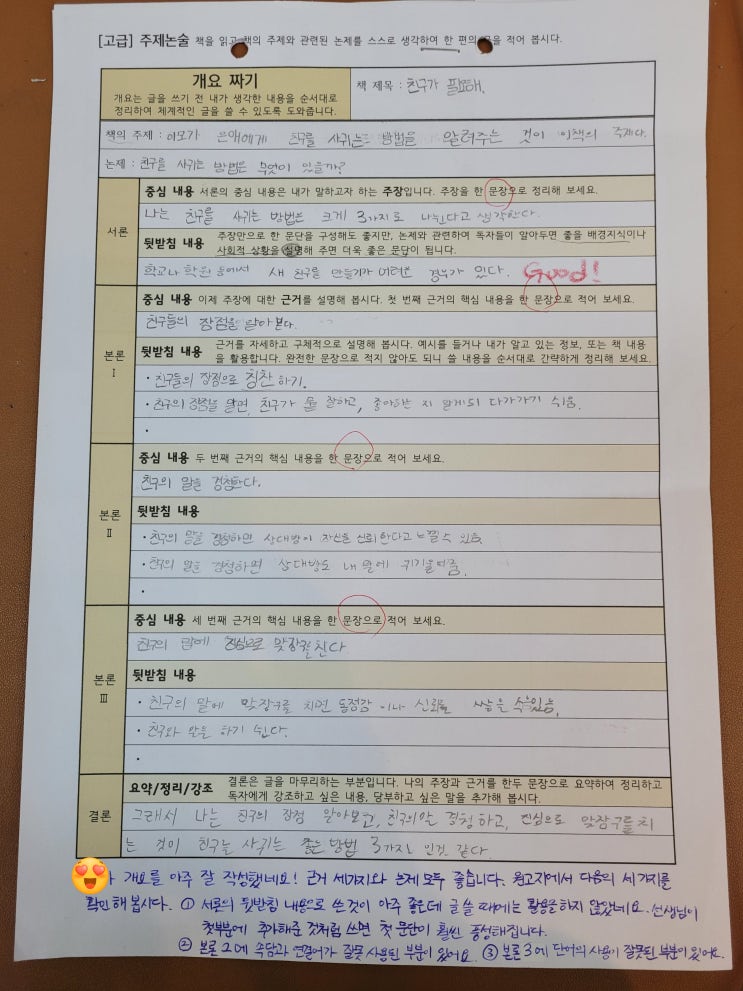 [고급] 주제논술 책을 읽고 책의 주제와 관련된 논제를 스스로 생각하여 한 편의 글을 적어 봅시다.
개요 짜기
개요는 글을 쓰기 전 내가 생각한 내용을 순서대로
정리하여 체계적인 글을 쓸 수 있도록 도와줍니다.
책 제목 : 친구가 필요해.
책의 주제 : 이모가 은애에게 친구를 사귀는 방법을 알려주는 것이 이책의 주제다.
논제 : 친구를 사귀는 방법은 무엇이 있을까?
서론
중심 내용 서론의 중심 내용은 내가 말하고자 하는 주장입니다. 주장을 한 문장으로 정리해 보세요.
나는 친구를 사귀는 방법은 크게 3가지로 나뉜다고 생각한다.
뒷받침 내용 주장만으로 한 문단을 구성해도 좋지만, 논제와 관련하여 독자들이 알아두면 좋을 배경지식이나
사회적 상황을 설명해 주면 더욱 좋은 문단이 됩니다.
학교나 학원 등에서 새 친구를 만들기가 어려운 경우가 있다. Good!
본론
I
중심 내용 이제 주장에 대한 근거를 설명해 봅시다. 첫 번째 근거의 핵심 내용을 한 문장으로 적어 보세요.
친구들의 장점을 알아본다.
뒷받침 내용 근거를 자세하고 구체적으로 설명해 봅시다. 예시를 들거나 내가 알고 있는 정보, 또는 책 내용
을 활용합니다. 완전한 문장으로 적지 않아도 되니 쓸 내용을 순서대로 간략하게 정리해 보세요.
· 친구들의 장점으로 칭찬하기.
· 친구의 장점을 알면, 친구가 뭘 잘하고, 좋아하는 지 알게되 다가가기 쉬움.
·
본론
II
중심 내용 두 번째 근거의 핵심 내용을 한 문장으로 적어 보세요.
친구의 말을 경청한다.
뒷받침 내용
· 친구의 말을 경청하면 상대방이 자신을 신뢰한다고 느낄 수 있음.
· 친구의 말을 경청하면 상대방도 내 말에 귀기울여줌.
·
본론
III
중심 내용 세 번째 근거의 핵심 내용을 한 문장으로 적어 보세요.
친구의 말에 진심으로 맞장구를 친다
뒷받침 내용
· 친구의 말에 맞장구를 치면 동정감 이나 신뢰를 쌓을 수 있음.
· 친구와 말을 하기 쉽다.
·
결론
요약/정리/강조 결론은 글을 마무리하는 부분입니다. 나의 주장과 근거를 한두 문장으로 요약하여 정리하고
독자에게 강조하고 싶은 내용, 당부하고 싶은 말을 추가해 봅시다.
그래서 나는 친구의 장점 알아보고, 친구의말 경청하고, 진심으로 맞장구를치
는 것이 친구를 사귀는 좋은 방법 3가지 인것 같다.
개요를 아주 잘 작성했네요! 근거 세가지와 논제 모두 좋습니다. 원고지에서 다음의 세 가지를
확인해 봅시다. ① 서론의 뒷받침 내용으로 쓴것이 아주 좋은데 글 쓸 때에는 활용을하지 않았네요. 선생님이
첫부분에 추가해준 것처럼 쓰면 첫 문단이 훨씬 풍성해집니다.
② 본론 2에 속담과 연결어가 잘못 사용된 부분이 있어요. ③ 본론 3에 단어의 사용이 잘못된 부분이 있어요.